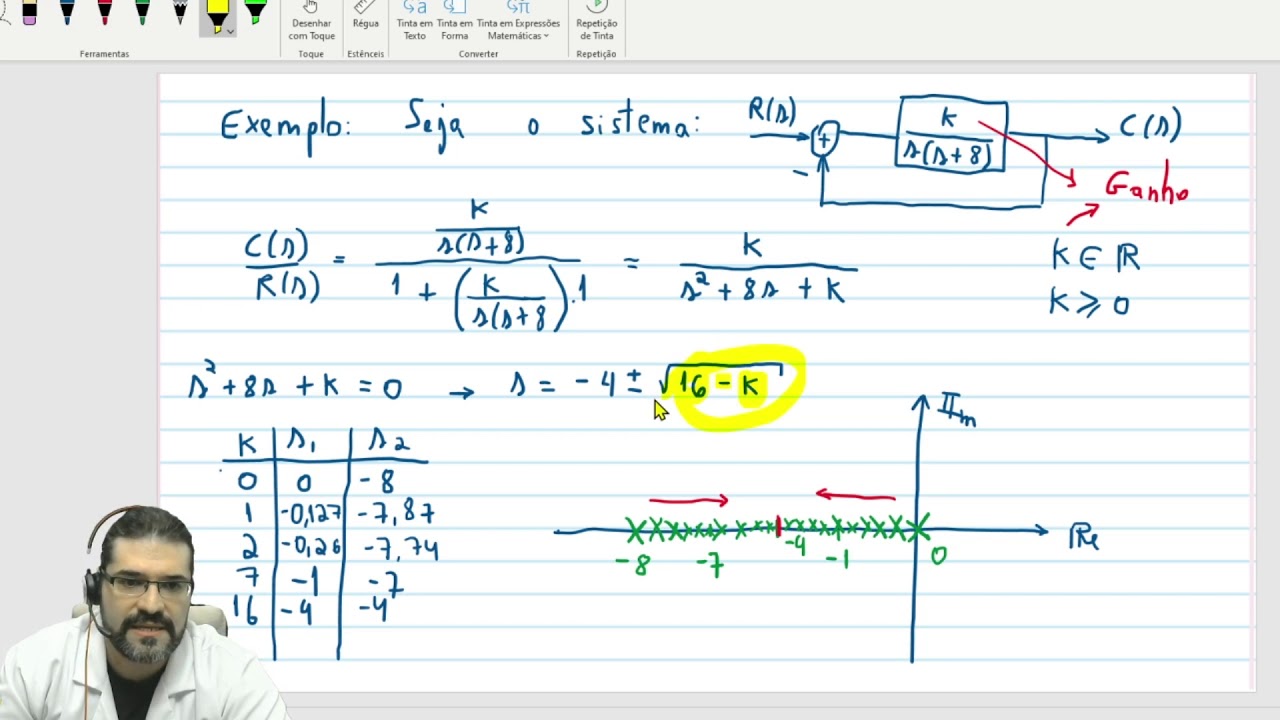 Desenhar com Toque
Régua
Tinta em Texto
Tinta em Forma
Tinta em Expressões Matemáticas
Repetição de Tinta
Ferramentas
Toque
Estênceis
Converter
Repetição
Exemplo: Seja o sistema:
R(s) + - k / s(s+8) C(s)
Ganho
C(s)/R(s) = (k / s(s+8)) / (1 + (k / s(s+8).1) = k / (s² + 8s + k)
k ∈ ℝ
k ⩾ 0
s² + 8s + k = 0 → s = -4 ± √16 - k
k s₁ s₂
0 0 -8
1 -0,127 -7,87
2 -0,26 -7,74
7 -1 -7
16 -4 -4
Im
Re
-8 -7 -4 -1 0